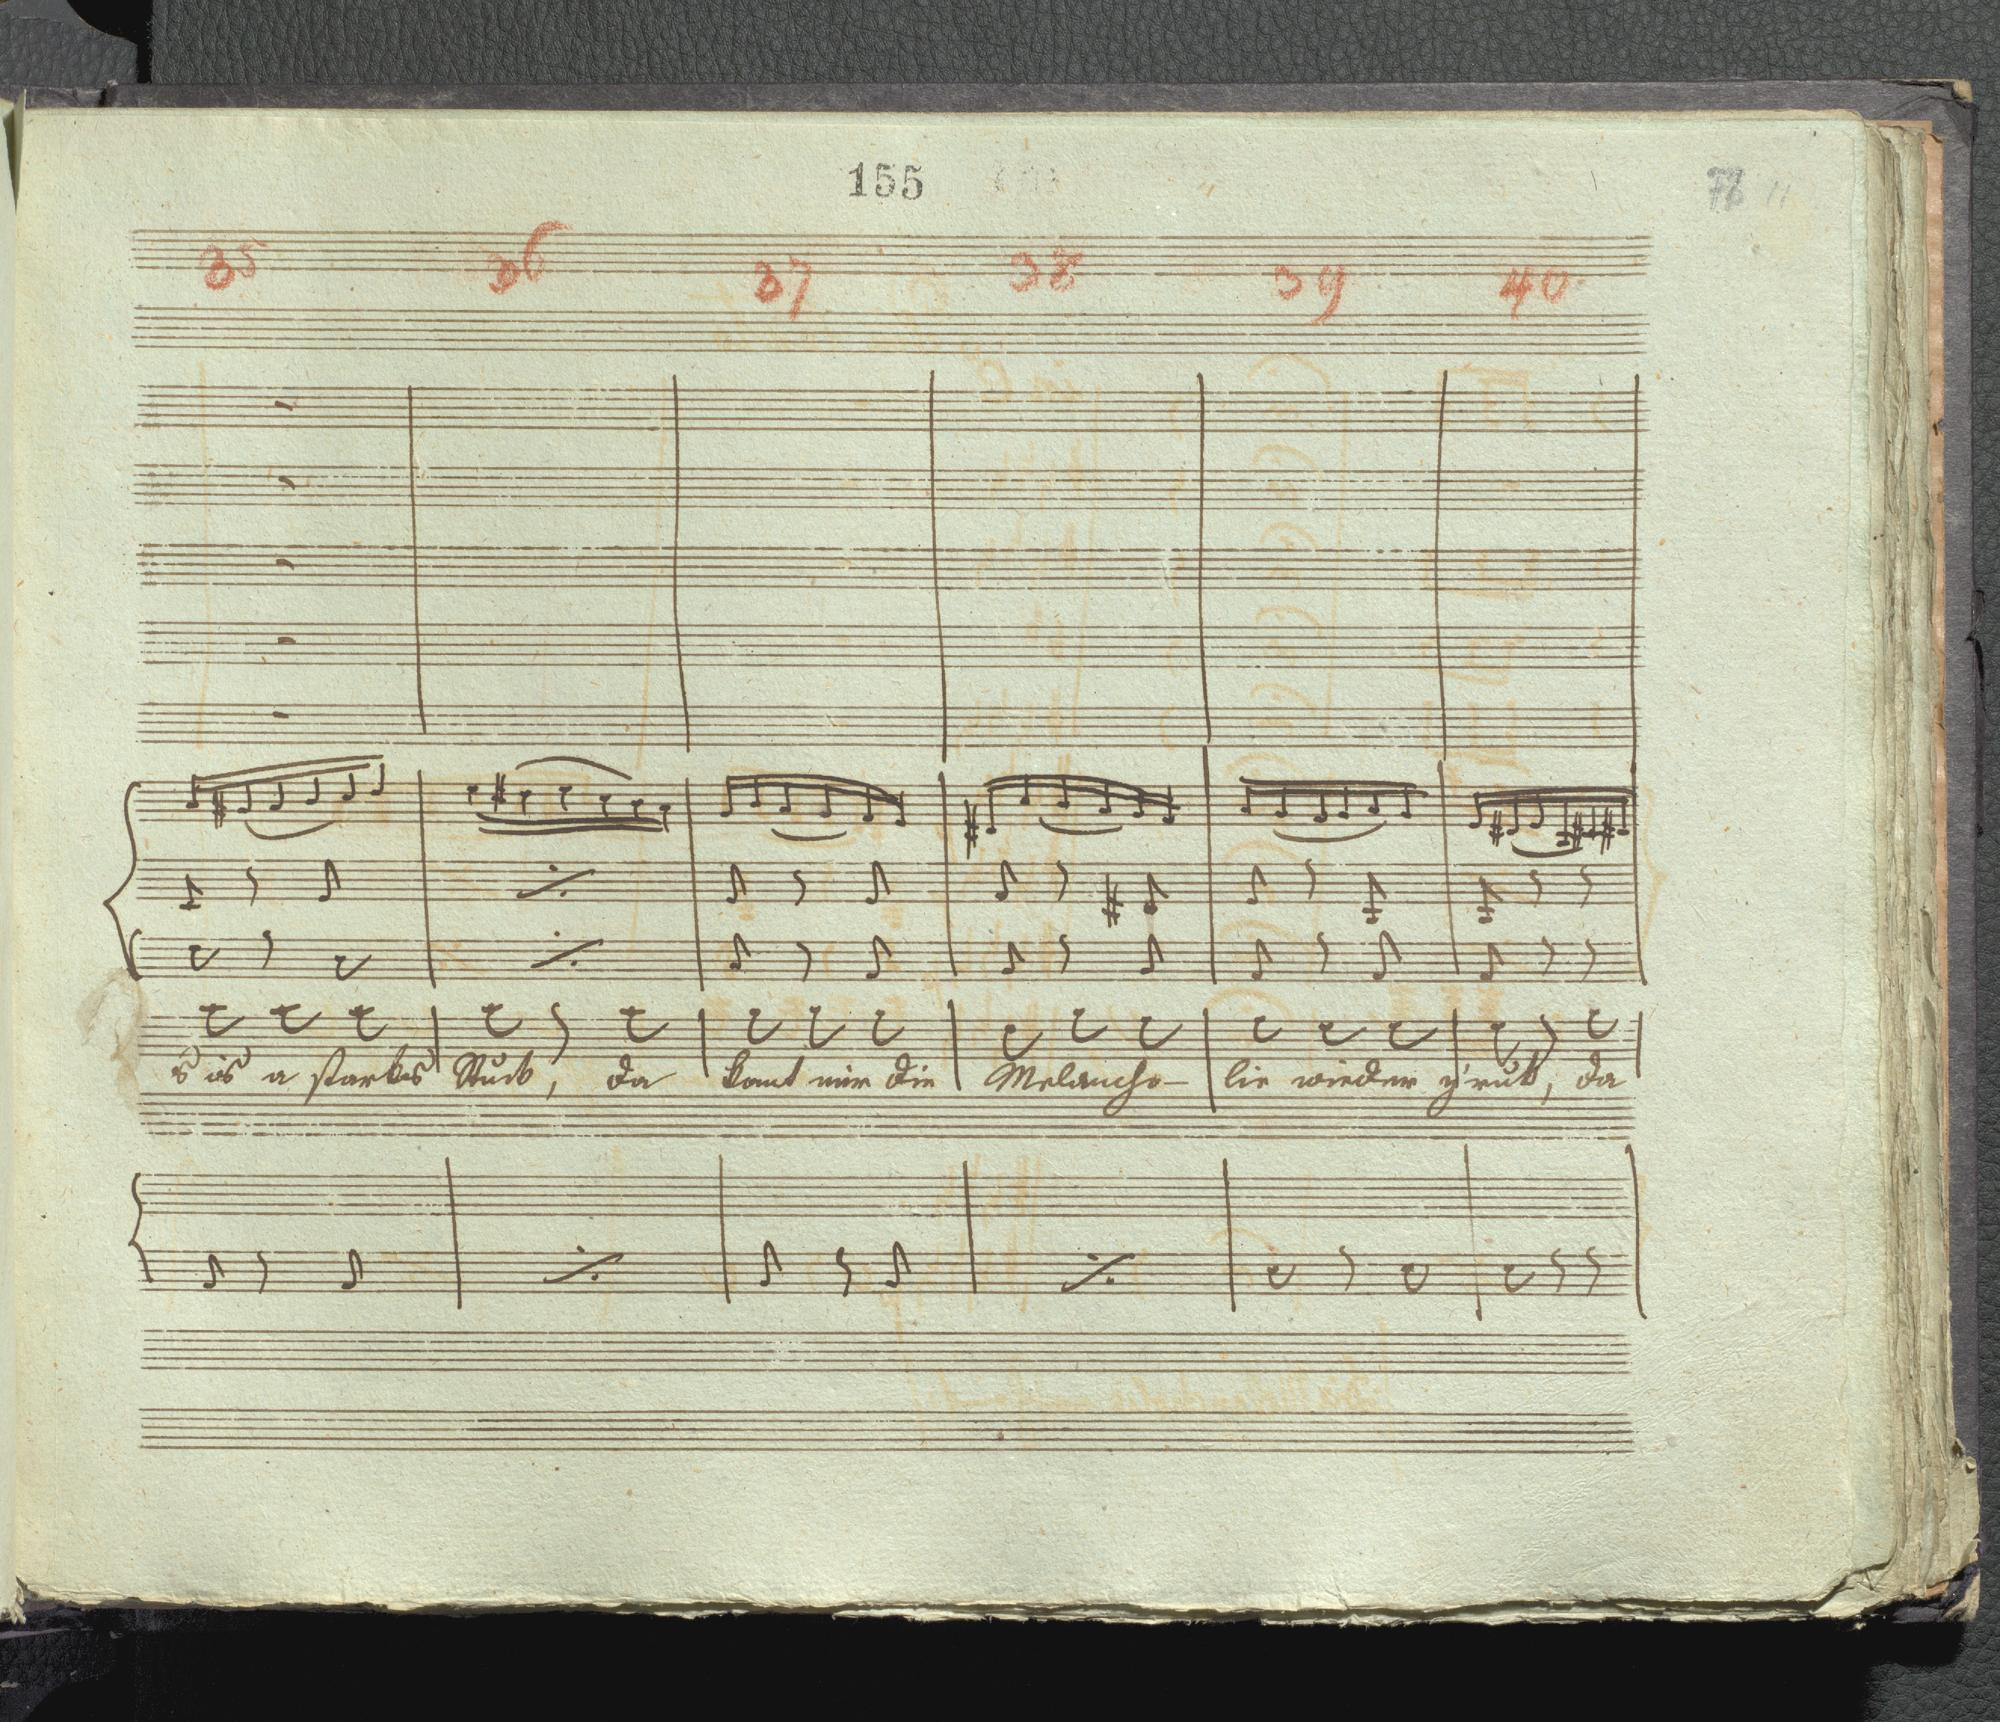 155
78
35 36 37 38 39 40
s'is a starkes Stuck, da komt mir die Melancho- lie wieder z'ruk, da